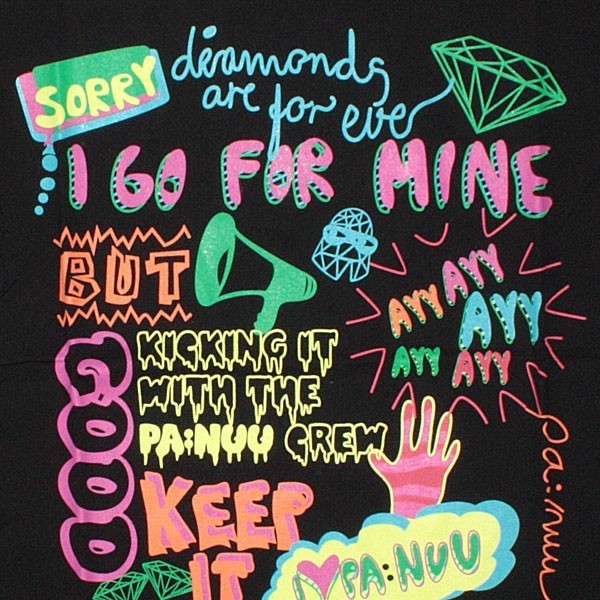 SORRY
diamonds
are for eve
I GO FOR MINE
BUT
AYY
AYY
AYY
AYY
AYY
GOOD
KICKING IT
WITH THE
PA:NUU CREW
pa:nuu
KEEP
IT
I ♥ PA:NUU